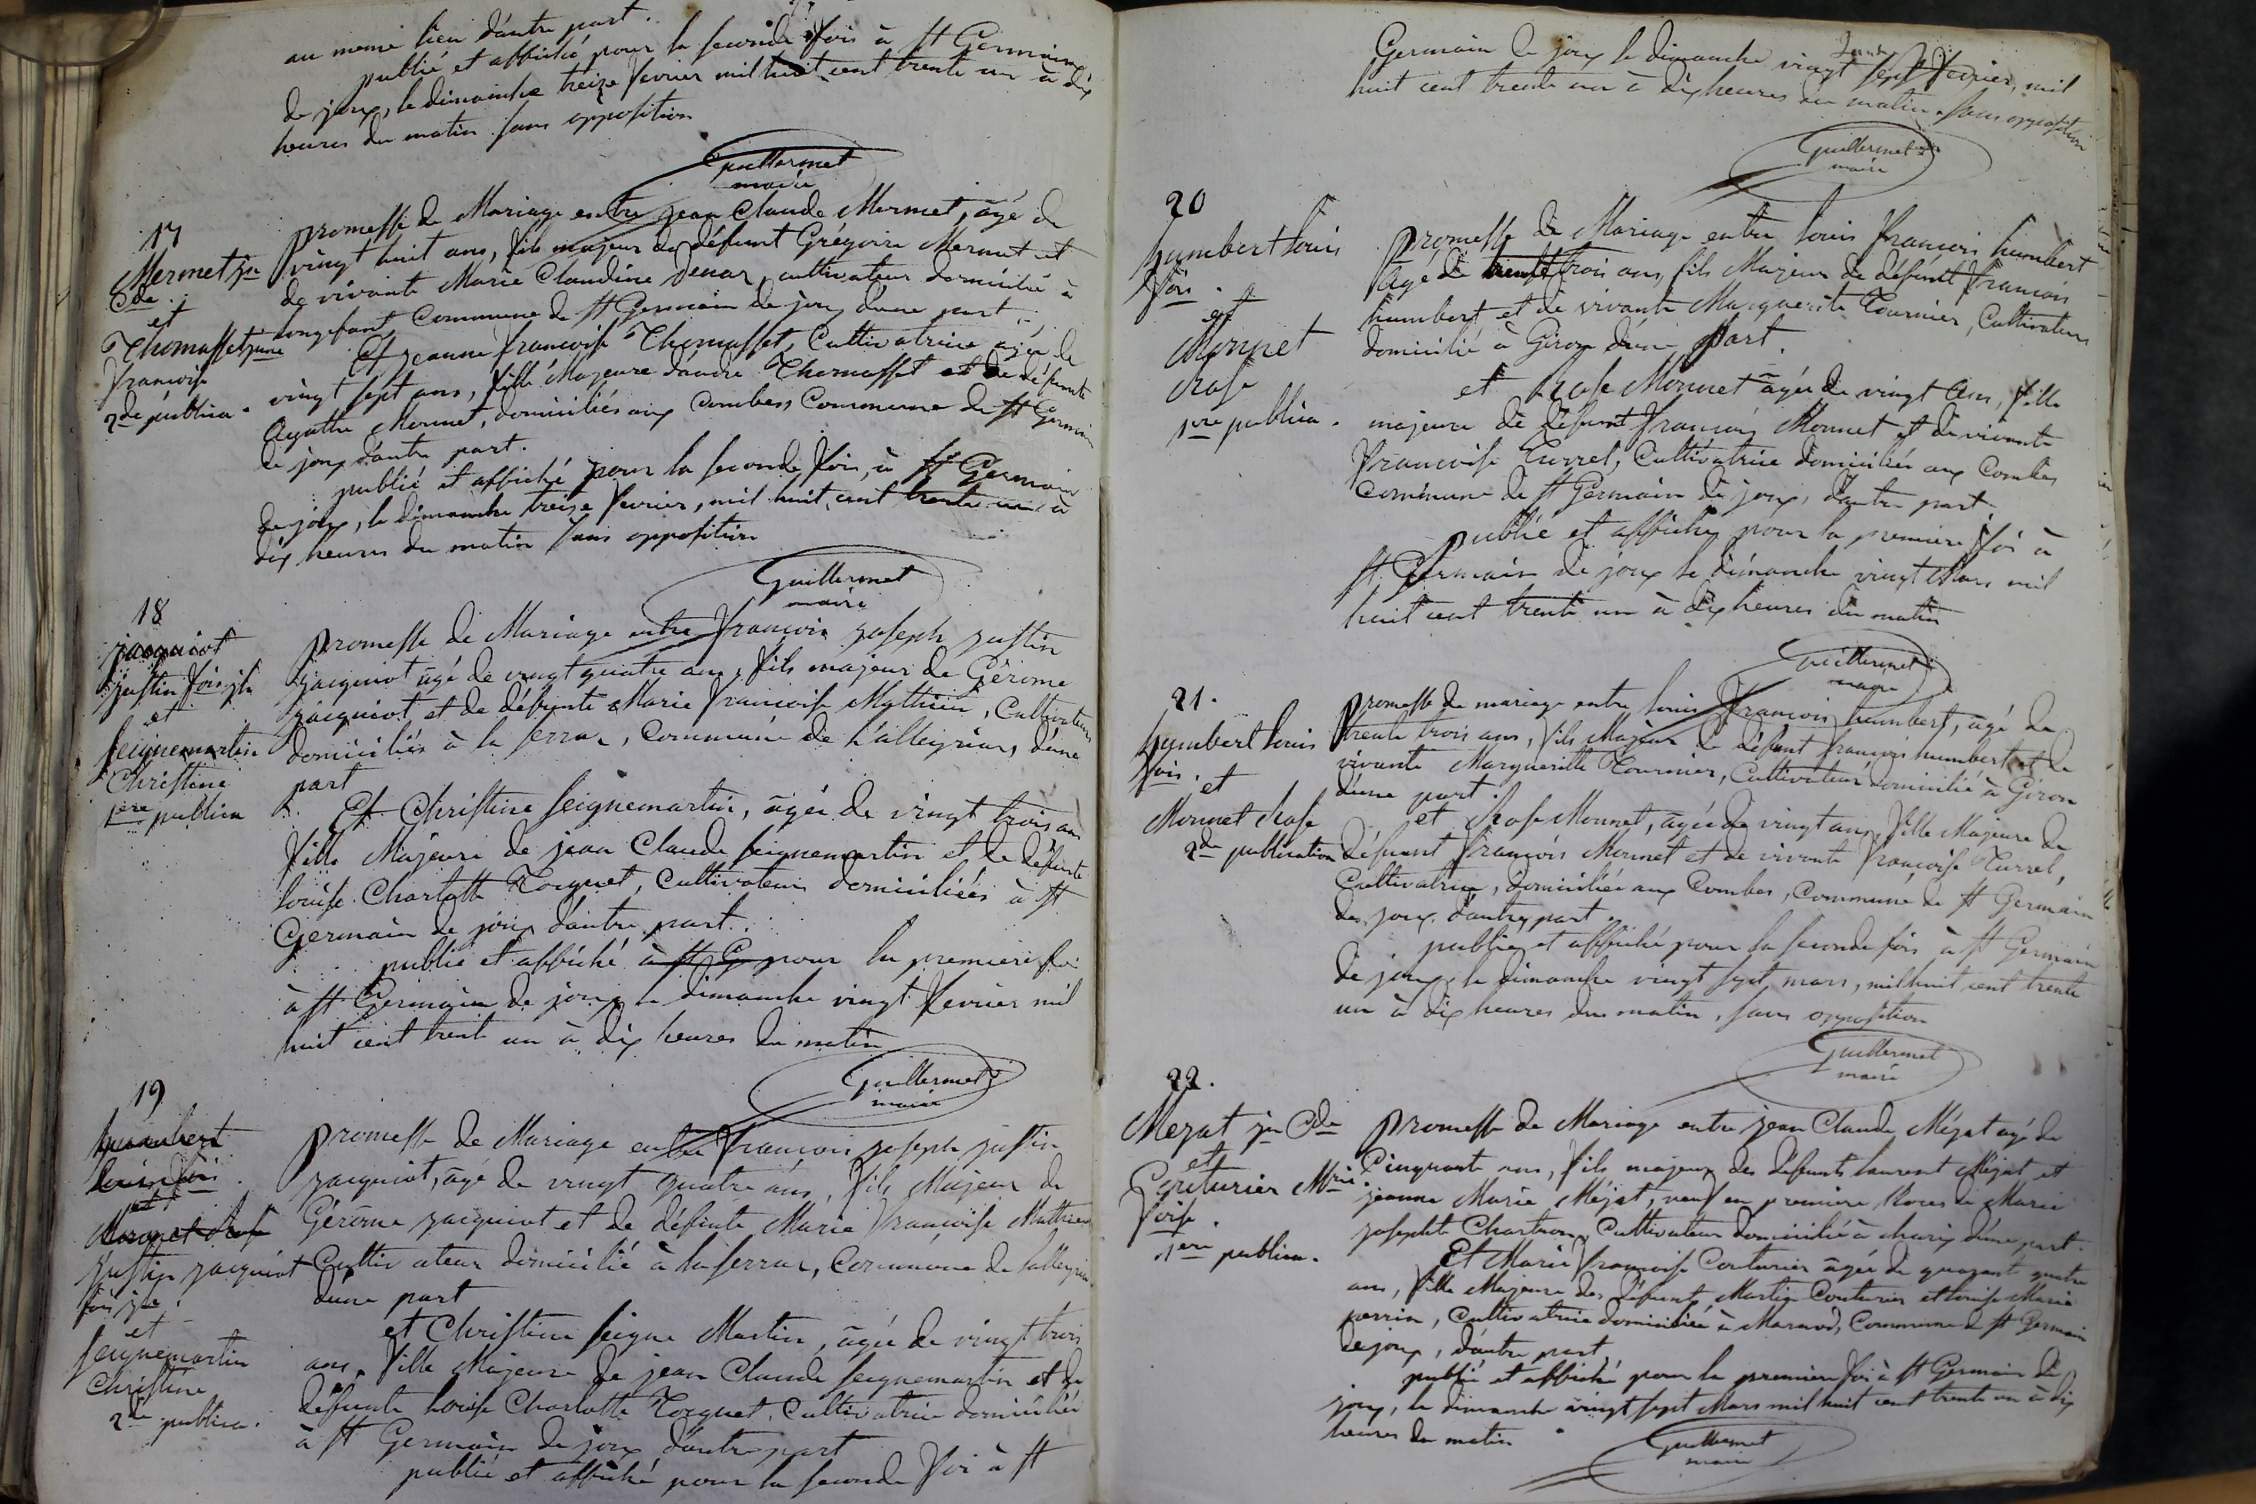 au meme lieu d'autre part.
publié et affiché pour la seconde fois à St Germain
de joux, le dimanche treize fevrier mil huit cent trente un à dix
heures du matin sans opposition
Guillermet
maire
17
Mermet jn
Cde
et
Thomasset jeane
francoise
2de publica.
promesse de Mariage entre jean Claude Mermet, âgé de
vingt huit ans, fils majeur de défunt Grégoire Mermet et
de vivante Marie Claudine Denar, cultivateur domicilié à
longefant commune de St Germain de joux d'une part
Et jeanne francoise Thomasset, Cultivatrice agée de
vingt sept ans, fille Majeure d'andré Thomasset et de défunte
Agathe Mermet, domiciliés aux Combes Commune de St Germain
de joux d'autre part.
publié et affiché pour la seconde fois, à St Germain
de joux, le dimanche treize fevrier, mil huit cent trente un à
dix heures du matin sans opposition
Guillermet
maire
18
jacquiot
justin fois jh
et
seignemartin
Christine
1ere publica
promesse de Mariage entre françois joseph justin
jacquiot âgé de vingt quatre ans, fils majeur de Gérome
jacquiot et de défunte Marie francoise Mathieu, Cultivateurs
domiciliés à la serraz, Commune de l'alleyriat, d'une
part
Et Christine seignemartin, âgée de vingt trois ans
fille Majeure de jean Claude seignemartin et de défunte
louise Charlotte Tocquet, Cultivateurs domiciliés à St
Germain de joux d'autre part.
publié et affiché à St G pour la premiere foi
à St Germain de joux le dimanche vingt fevrier mil
huit cent trente un à dix heures du matin
Guillermet
maire
19
humbert
louis fois
et
Monnet Rose
justin jacquiot
fois jh
et
seignemartin
Christine
2de publica.
promesse de Mariage entre françois joseph justin
jacquiot, âgé de vingt quatre ans, fils Majeur de
Gérôme jacquiot et de défunte Marie françoise Mathieu
Cultivateur domicilié à la serraz, Commune de l'alleyriat
d'une part
et Christine seigne Martin, âgée de vingt trois
ans, fille Majeure de jean Claude seignemartin et de
défunte louise Charlotte Tocquet, Cultivatrice domiciliée
à St Germain de joux d'autre part
publié et affiché pour la seconde foi à St
Germain de joux le dimanche vingt sept fevrier, mil
huit cent trente un à dix heures du matin. sans opposition
Guillermet
maire
20
humbert louis
fois.
et
Monnet
Rose
1ere publica.
Promesse de Mariage entre louis françois humbert
âgé de trente trois ans, fils Majeur de défunt françois
humbert et de vivante Marguerite Tournier, Cultivateur
domicilié à Giron d'une part.
et Rose Monnet âgée de vingt ans, fille
majeure de défunt françois Monnet et de vivante
françoise Turrel, Cultivatrice domiciliée aux Combes
commune de St Germain de joux, d'autre part
publié et affiché pour la premiere foi à
St Germain de joux le dimanche vingt Mars mil
huit cent trente un à dix heures du matin
Guillermet
maire
21.
humbert louis
fois.
et
Monnet Rose
2de publication
promesse de mariage entre louis françois humbert, âgé de
trente trois ans, fils Majeur de défunt françois humbert et de
vivante Marguerite Tournier, Cultivateur domicilié à Giron
d'une part.
et Rose Monnet, âgée de vingt ans, fille Majeure de
défunt françois Monnet et de vivante françoise Turrel,
Cultivatrice, domiciliée aux Combes, Commune de St Germain
de joux, d'autre part
publié et affiché pour la seconde fois à St Germain
de joux, le dimanche vingt sept mars, mil huit cent trente
un à dix heures du matin, sans opposition
Guillermet
maire
22.
Mezat jn Cde
et
Couturier Mrie
foise.
1ere publica.
promesse de Mariage entre jean Claude Mézat agé de
Cinquante ans, fils majeur des défunts laurent Mézat et
jeanne Marie Mézat, veuf en premiere Noces de Marie
josephte Chartron, Cultivateur domicilié à charix d'une part.
Et Marie françoise Couturier âgée de quarante quatre
ans, fille Majeure des défunts Martin Couturier et louise Marie
perrin, Cultivatrice domiciliée à Marnod, Commune de St Germain
de joux, d'autre part
publié et affiché pour la premiere foi à St Germain de
joux, le dimanche vingt sept Mars mil huit cent trente un à dix
heures du matin
Guillermet
maire